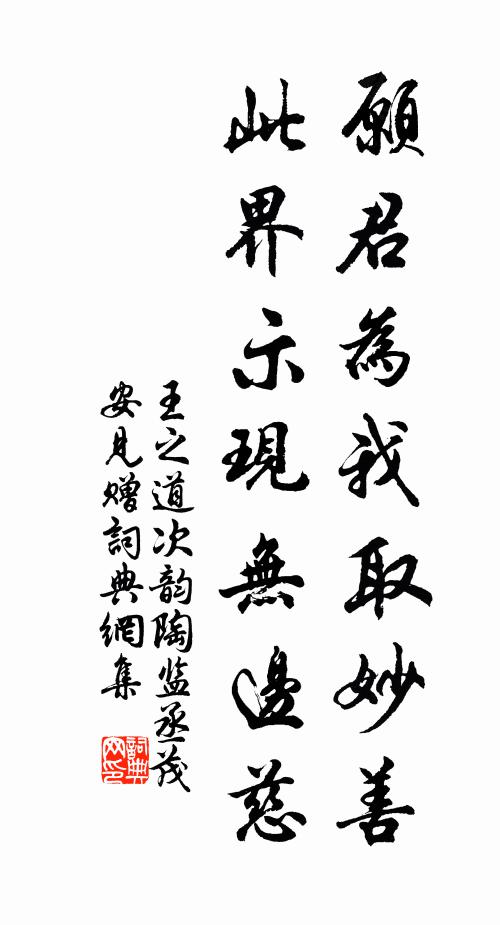 願君為我取妙善
此界示現無邊慈
王之道次韵陶监丞茂
安見贈詞典網集
詞典
网印